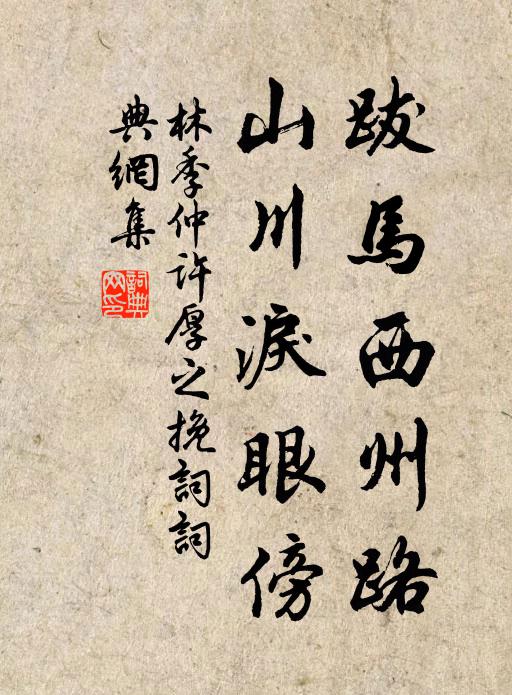 跋馬西州路
山川淚眼傍
林季仲許厚之挽詞詞
典網集
詞典網印